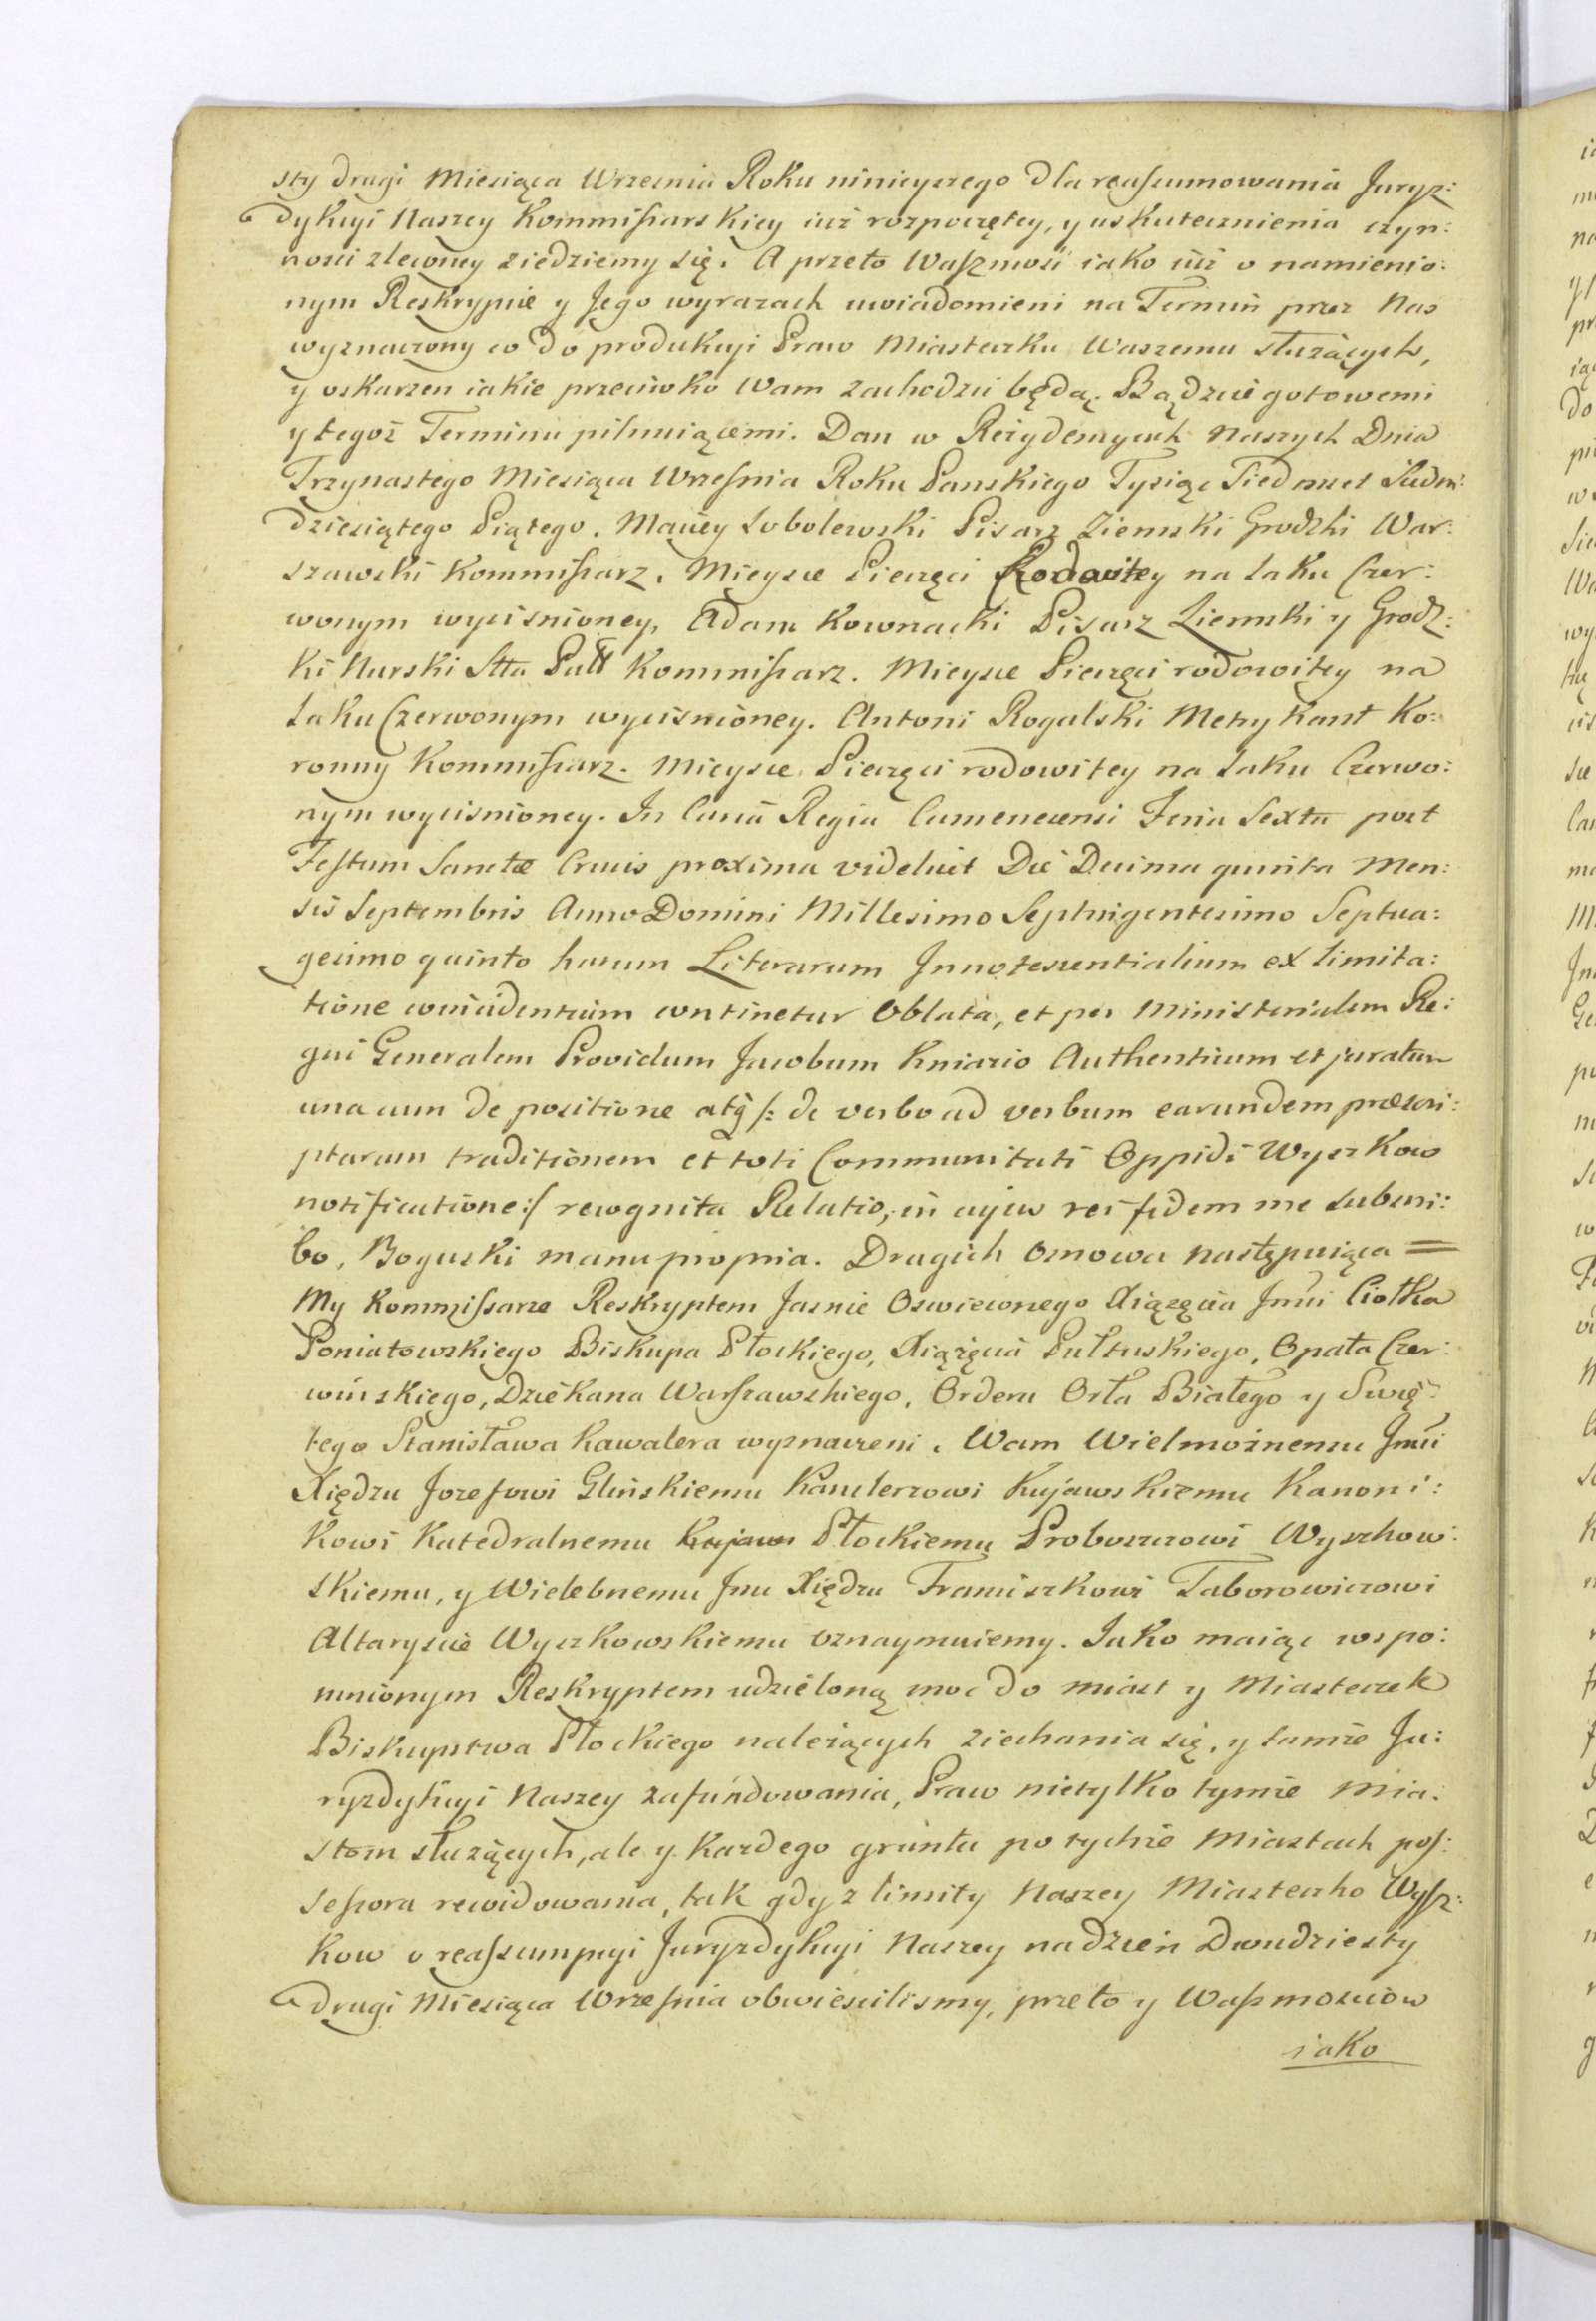 sty drugi Miesiąca Wrzesnia Roku ninieyszego dla reassumowania Juryz:
dykcyi Naszey Kommissarskiey iuż rozpoczętey, y uskutecznienia czyn:
nosci zleconey ziedziemy się. A przeto Waszmosci iako iuż o namienio:
nym Reskrypcie y Jego wyrazach uwiadomieni na Termin przez Nas
wyznaczony co do produkcyi Praw Miasteczku Waszemu służących,
y oskarzen iakie przeciwko Wam zachodzic będą. Bądzcie gotowemi
y tegoż Terminu pilnuiącemi. Dan w Rezydencyach Naszych Dnia
Trzynastego Miesiąca Wrzesnia Roku Panskiego Tysiąc Siedmset Siedm:
dziesiątego Piątego. Maciey Sobolewski Pisarz Ziemski Grodzki War:
szawski Kommissarz. Mieysce Pieczęci Rodowitey na Laku Czer:
wonym wycisnioney. Adam Kownacki Pisarz Ziemski y Grodz:
ki Nurski Kommissarz. Mieysce Pieczęci rodowitey na
Laku Czerwonym wycisnioney. Antoni Rogalski Metrykant Ko:
ronny Kommissarz. Mieysce Pieczęci rodowitey na Laku Czerwo:
nym wycisnioney. In Curia Regia Camenecensi Feria Sexta post
Festum Sanctæ Crucis proxima videlicet Die Decima quinta Men:
sis Septembris Anno Domini Millesimo Septingentesimo Septua:
gesimo quinto harum Literarum Innotescentialium ex limita:
tione coincidentium continetur Oblata, et per Ministerialem Re:
gni Generalem Providum Jacobum Kniazio Authenticum et juratum
una cum de positione atq̃ /: de verbo ad verbum earundem præscri:
ptarum traditionem et toti Communitati Oppidi Wyszkow
notificatione :/ recognita Relatio, in cujus rei fidem me subscri:
bo, Boguski manu propria. Drugich osnowa następuiąca =
My Kommissarze Reskryptem Jasnie Oswieconego Xiążęcia Jmci Ciołka
Poniatowskiego Biskupa Płockiego, Xiążęcia Pułtuskiego, Opata Czer:
wińskiego, Dziekana Warszawskiego, Orderu Orła Białego y Swię:
tego Stanisława Kawalera wyznaczeni. Wam Wielmożnemu Jmci
Xiędzu Jozefowi Glinskiemu Kanclerzowi Kujawskiemu Kanoni:
kowi Katedralnemu Kujaw Płockiemu Proboszczowi Wyszkow:
skiemu, y Wielebnemu Jmci Xiędzu Franciszkowi Taborowiczowi
Altaryscie Wyszkowskiemu oznaymuiemy. Jako maiąc wspo:
mnionym Reskryptem udzieloną moc do miast y Miasteczek
Biskupstwa Płockiego należących ziechania się, y tamże Ju:
ryzdykcyi Naszey zafundowania, Praw nietylko tymże Mia:
stom służących, ale y każdego gruntu po tychże Miastach pos:
sessora rewidowania, tak gdy z limity Naszey Miasteczko Wysz:
kow o reassumpcyi Juryzdykcyi Naszey na dzień Dwudziesty
drugi Miesiąca Wrzesnia obwiescilismy, przeto y Waszmosciow
iako